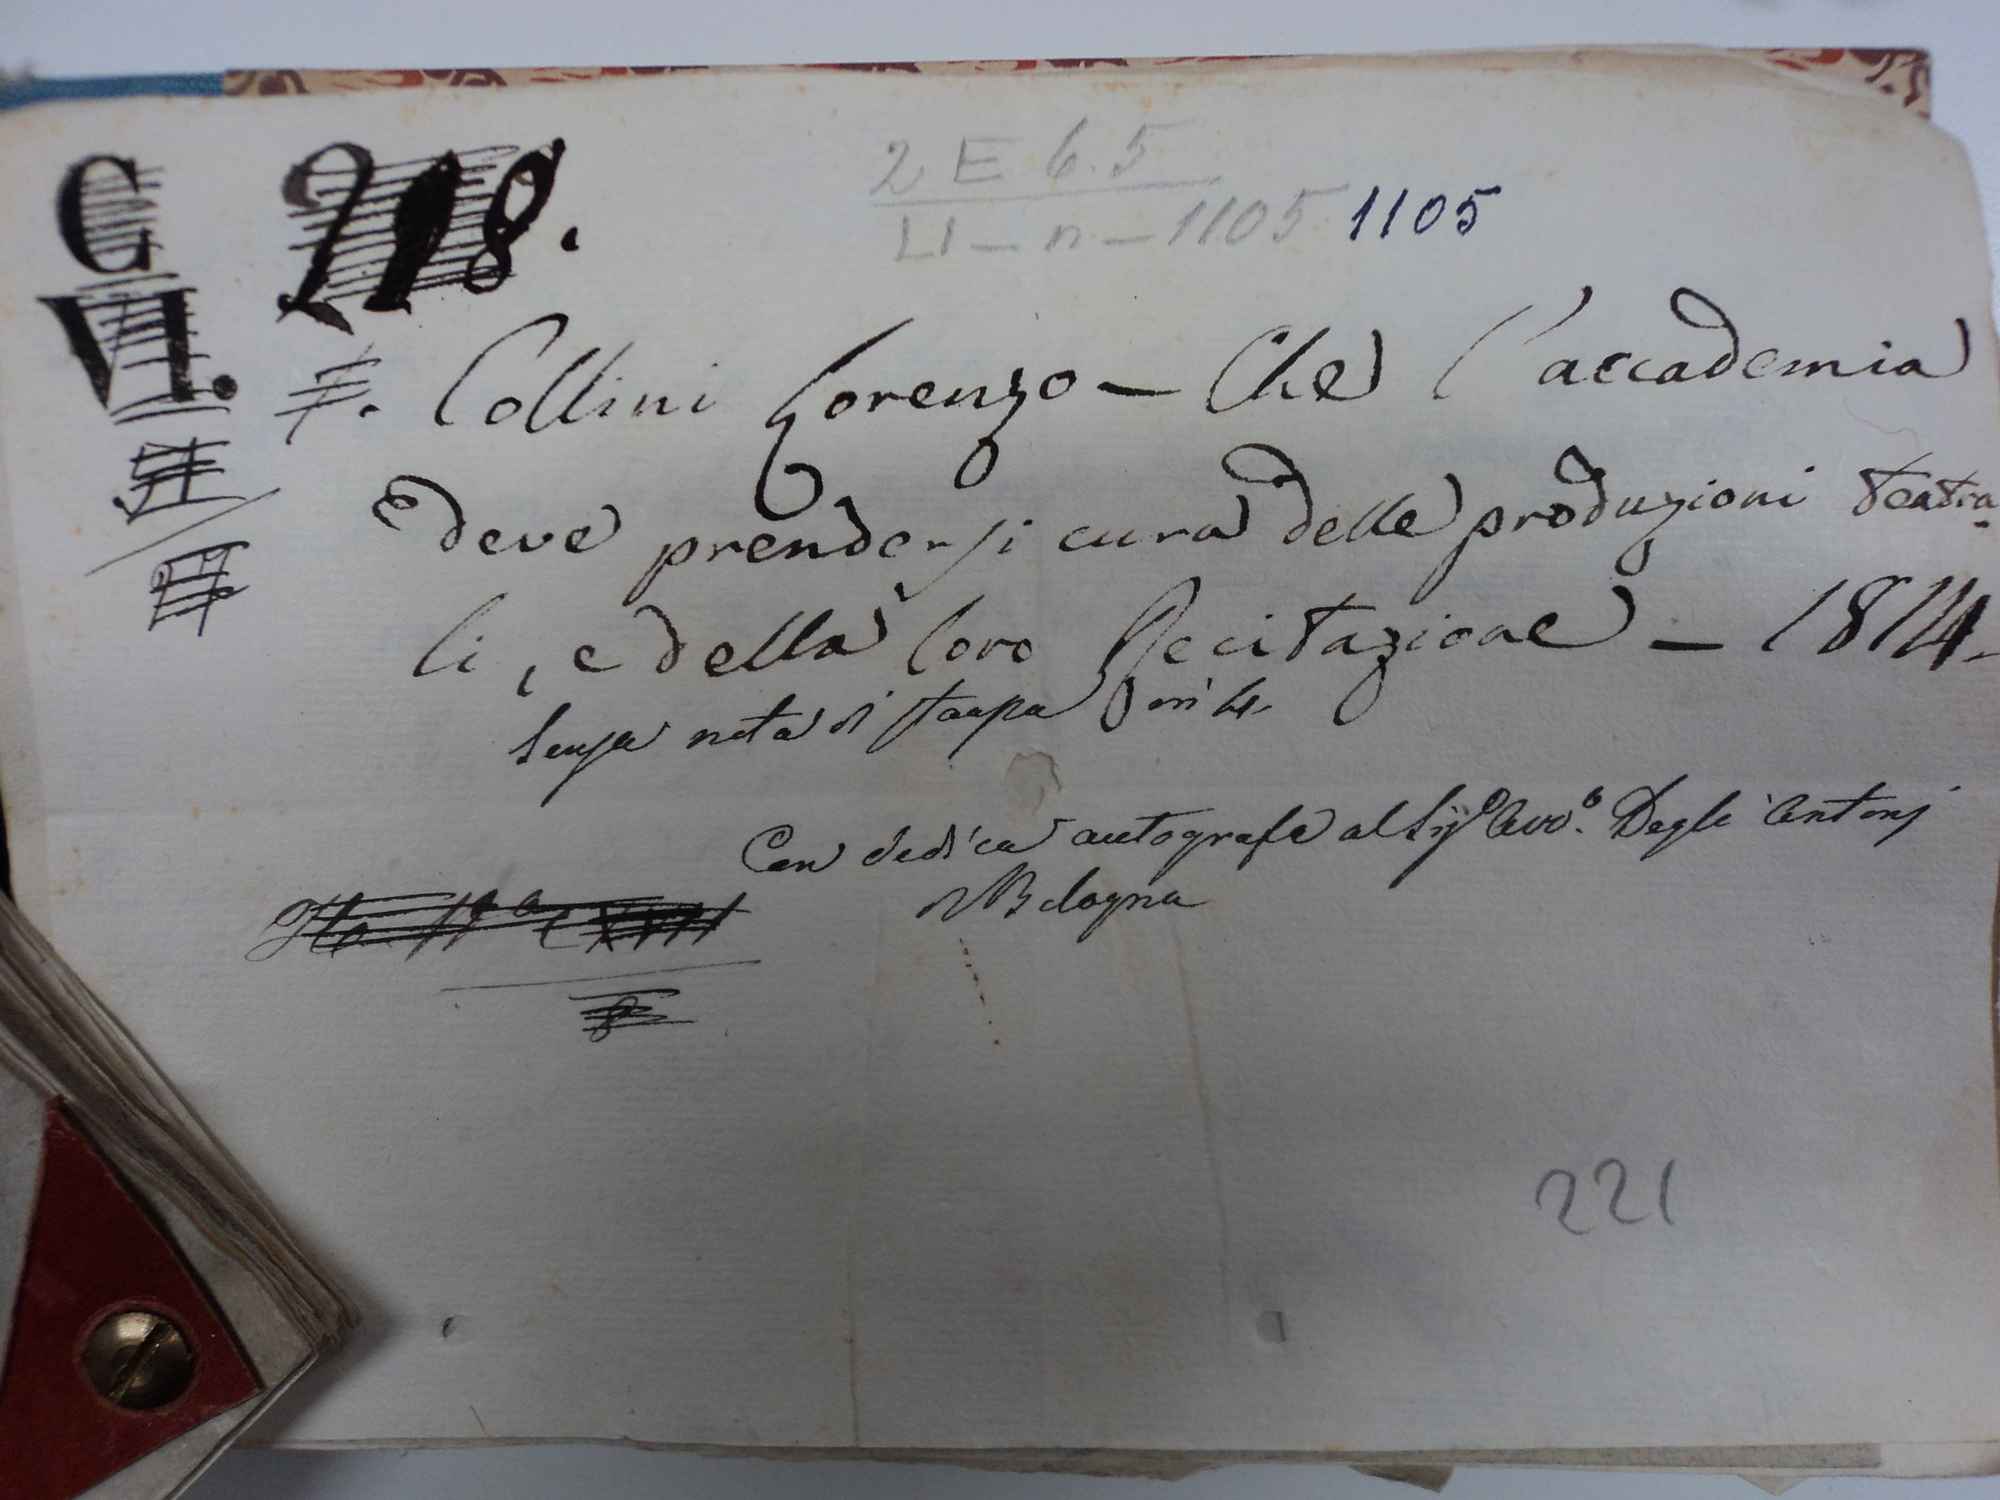 C 218.
VI.
2 E 6.5
LI - n - 1105 1105
7. Collini Lorenzo - Che l'accademia
deve prendersi cura delle produzioni teatra-
li, e della loro Recitazione - 1814 -
Senza nota di stampa in 4.
Con dedica autografa al Sigr Avvo. Degli Antonj
di Bologna
221